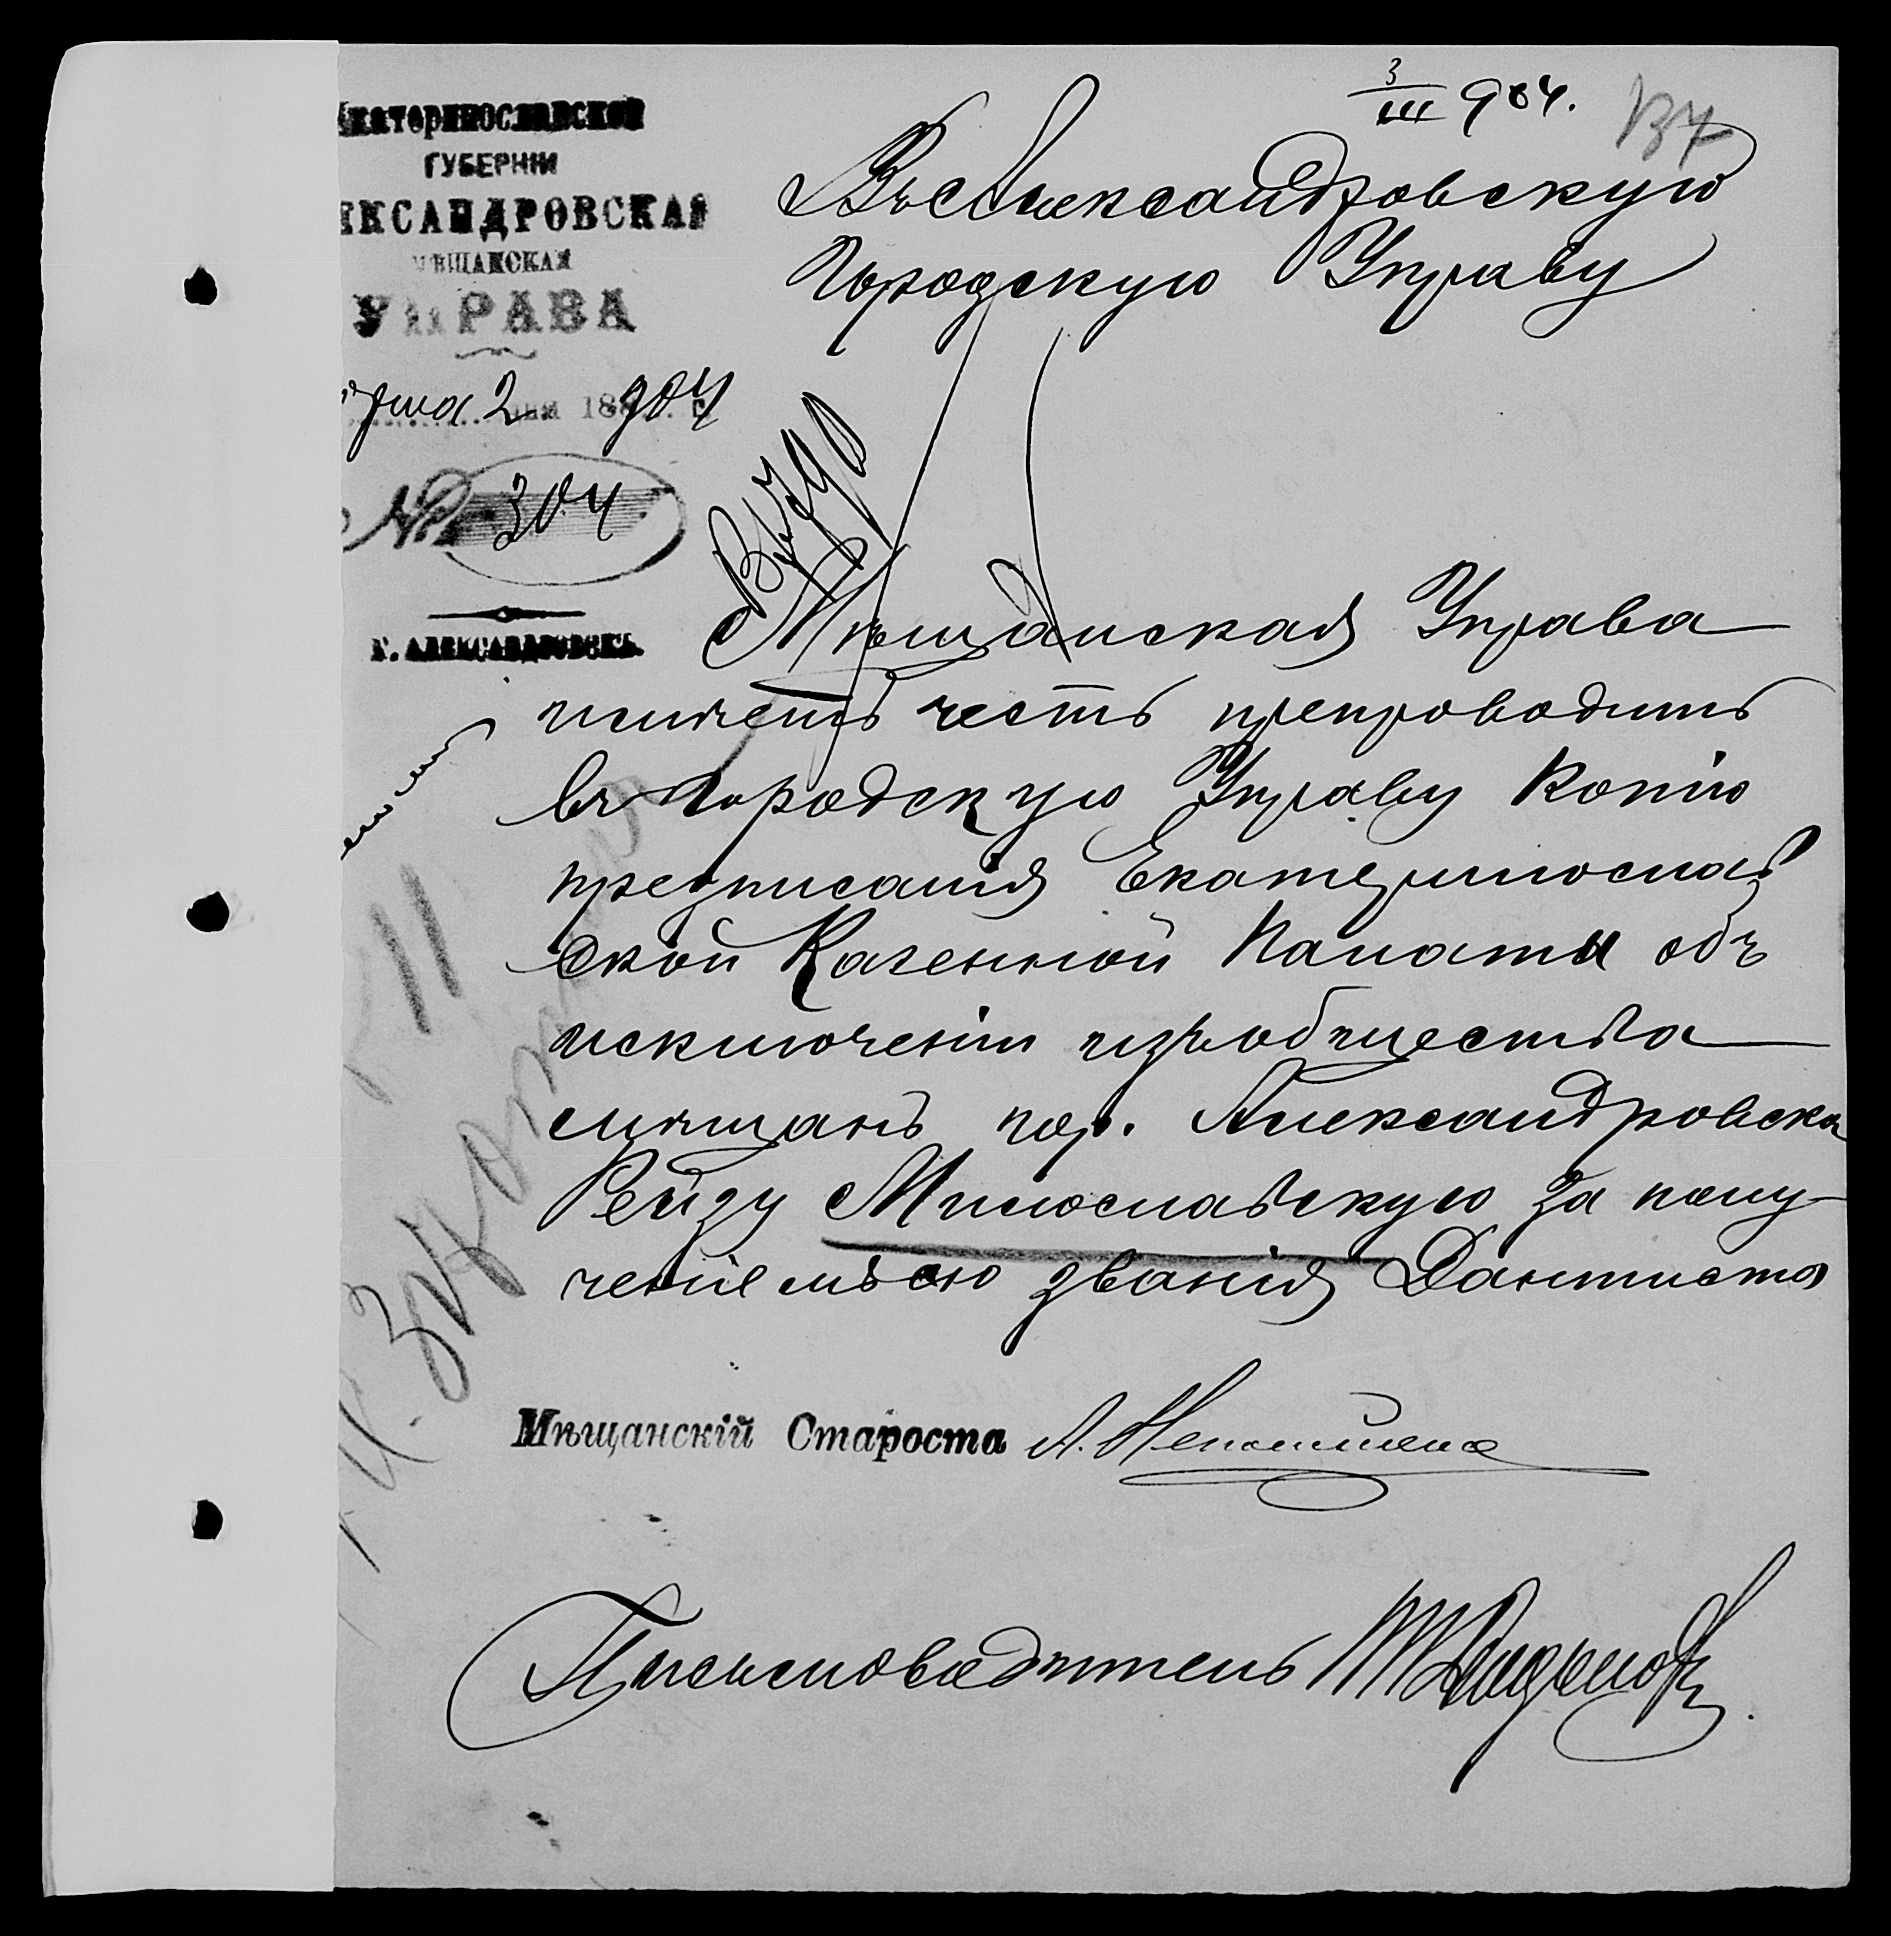 3/III 904.
137
Екатеринославской
ГУБЕРНІИ
АЛЕКСАНДРОВСКАЯ
МѢЩАНСКАЯ
УПРАВА
Марта 2 дня 188 904 г.
№ 304
Г. АЛЕКСАНДРОВСКЪ.
Въ Александровскую
Городскую Управу
Мѣщанская Управа
имѣетъ честь препроводить
въ Городскую Управу копію
предписанія Екатеринослав
ской Казенной Палаты объ
исключеніи изъ общества
мѣщанъ гор. Александровска
Рейзу Милославскую за полу-
ченіемъ ею званія Дантиста
Мѣщанскій Староста А.
Письмоводитель